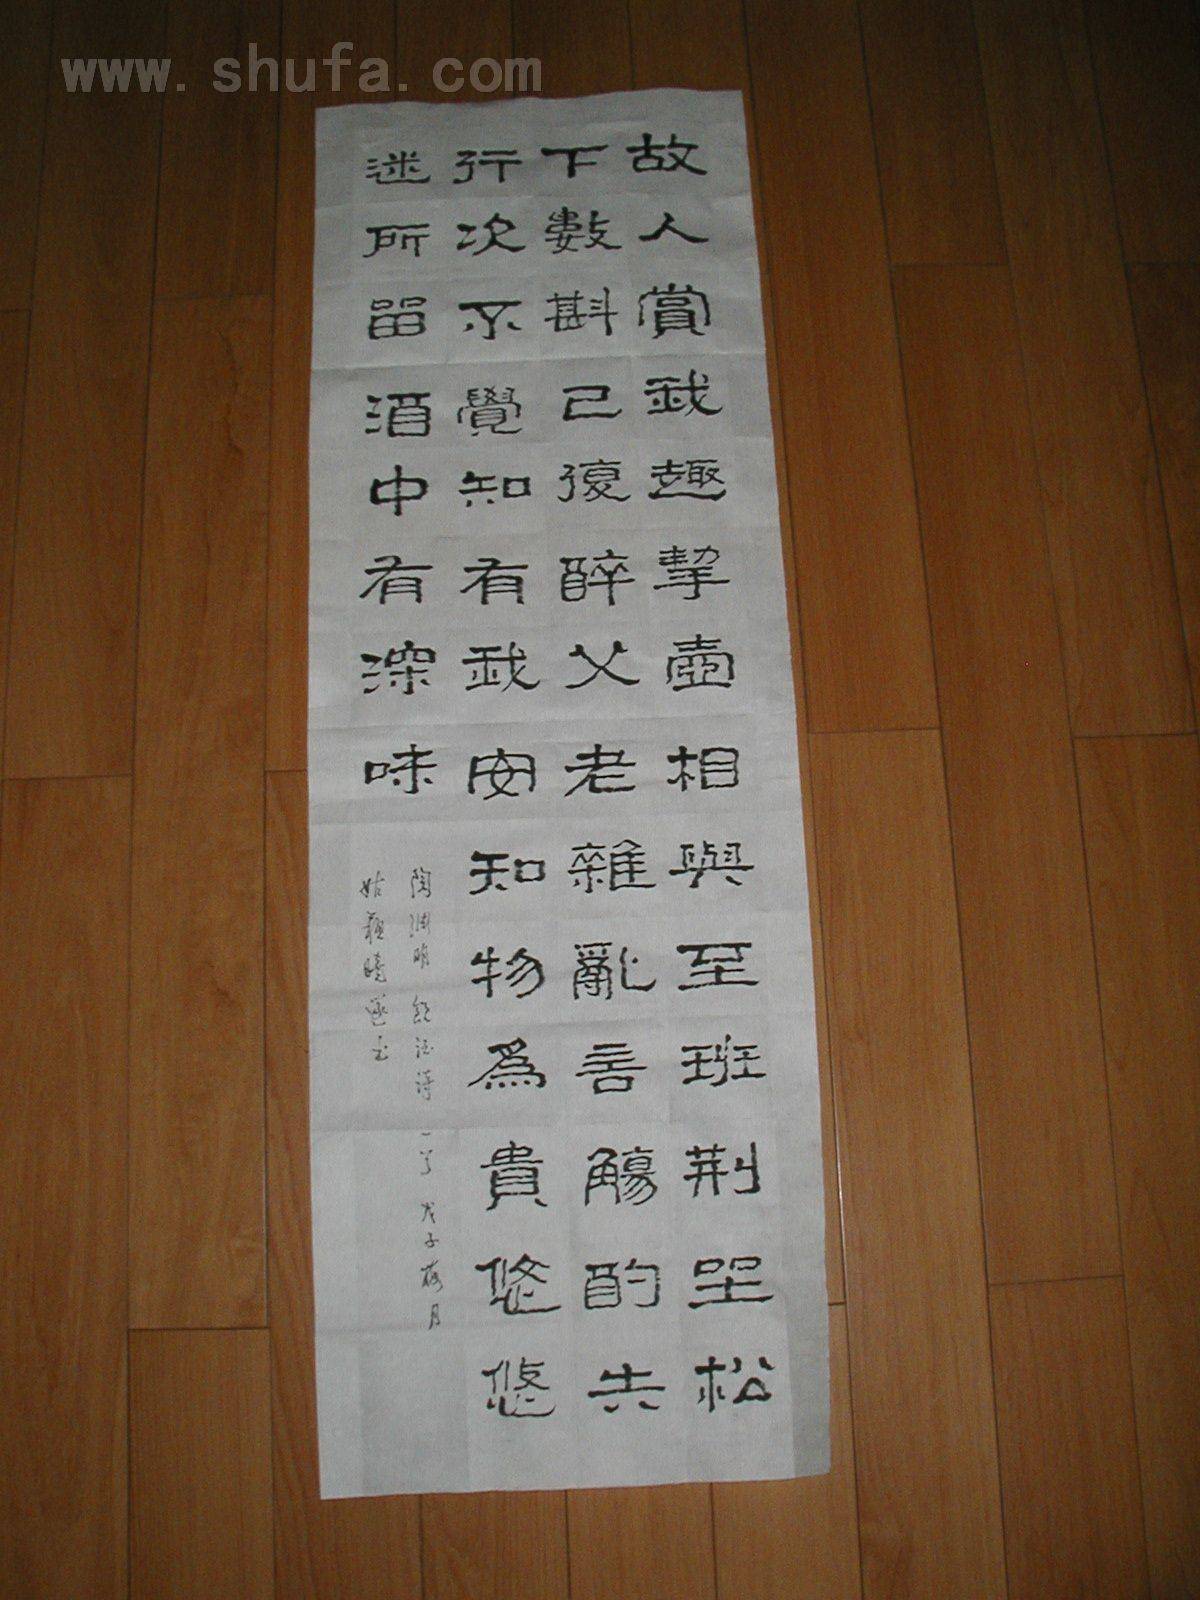 www.shufa.com
故人賞我趣挈壺相與至班荆坐松
下數斟已復醉父老雜亂言觴酌失
行次不覺知有我安知物為貴悠悠
迷所留酒中有深味
陶淵明飲酒詩一首 戊子月
姑蘇